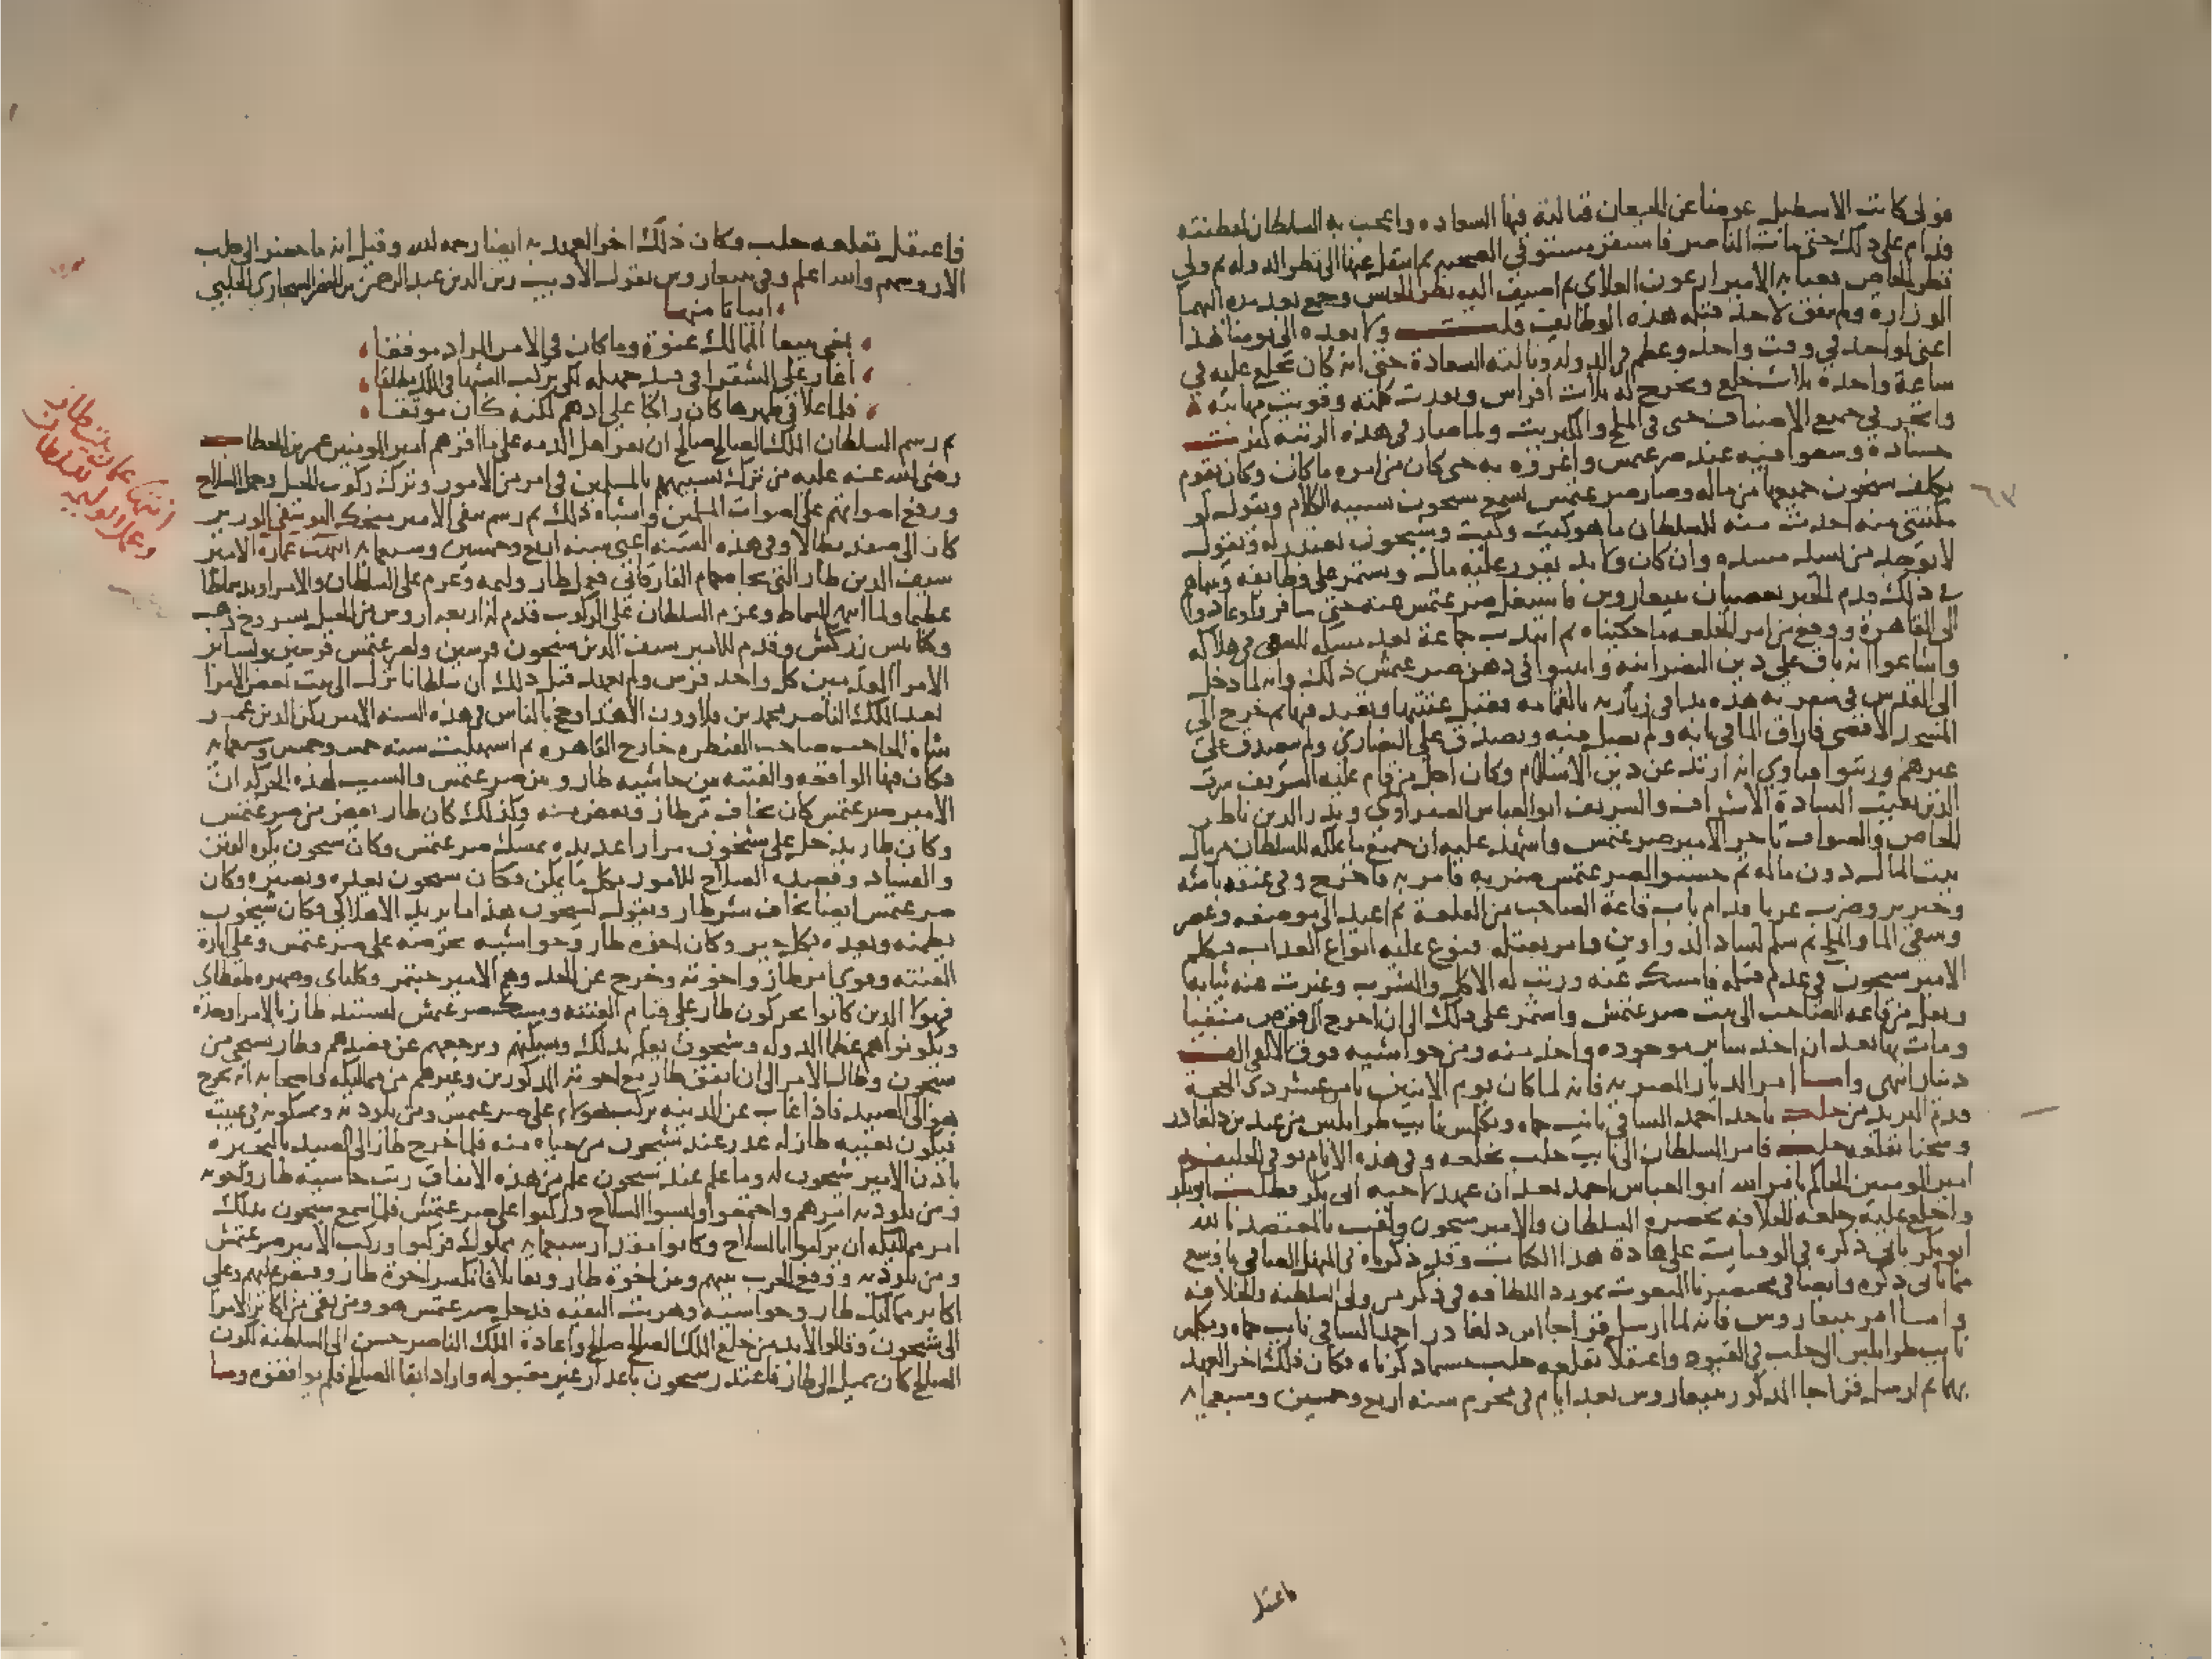 فولى كاتب الاسطبل عوضا عن ابن الجيعان فنالته فيها السعاده واعجب به السلطان لفطنته
ودام على ذلك حتى مات الناصر فاستقر مستوفى الصحبه ثم انتقل عنها الى نظر الدوله ثم ولى
نظر الخاص بعنايه الامير ارغون العلاى ثم اضيف اليه نظر الجيش وجمع بعد مده اليهما
الوزارة ولم يتفق لاحد قبله هذه الوظايف قلت ولا بعده الى يومنا هذا
اعنى لواحد فى وقت واحد وعظم فى الدوله ونالته السعادة حتى انه كان يخلع عليه فى
ساعة واحدة ثلاث خلع ويخرج له ثلاث افراس ونفدت كلمته وقويت مهابته
واتجر فى جميع الاصناف حتى فى الملح والكبريت ولما صار فى هذه الرتبه كثرت
حسادة وسعوا فيه عند صرغتمش واغروه به حتى كان من امره ما كان وكان يقوم
بكلف شيخون جميعها من ماله وصار صرغتمش يسمع شيخون بسببه الكلام ويقول لو
مكنتنى منه اخذت منه للسلطان ما هو كيت وكيت وشيخون يعتذر له ويقول
لا يوجد من يسد مسده وان كان ولا بد يقرر عليه مال ويستمر على وظايفه وبينماهم
فى ذلك قدم الخبر بعصيان بيبغاروس فاشتغل صرغتمش عنه حتى سافروا وعادوا
الى القاهرة ووقع من امر الخلعه ما حكيناه ثم انتدب جماعة بعد مسكه للسعى فى هلاكه
واشاعوا انه باق على دين النصرانيه واثبتوا فى ذهن صرغتمش ذلك وانه لما دخل
الى القدس فى سفرته هذه بدا فى زيارته بالقمامه فقبل عتبتها وتعبد فيها ثم خرج الى
المسجد الاقصى فاراق الما فى بابه ولم يصل فيه وتصدق على النصارى ولم يتصدق على
غيرهم ورتبوا فتاوى انه ارتد عن دين الاسلام وكان اجل من قام عليه الشريف شرف
الدين نقيب السادة الاشراف والشريف ابو العباس الصفراوى وبدر الدين ناظر
الخاص والصواف تاجر الامير صرغتمش واشهد عليه ان جميع ما يملكه للسلطان من مال
بيت المال دون ماله ثم حسنوا لصرغتمش ضربه فامر به فاخرج وفى عنقه باشه
وجنزير وضرب عريانا قدام باب قاعة الصاحب من القلعة ثم اعيد الى موضعه وعصر
وسقى الما والملح ثم سلم لشاد الدواوين وامر بقتله فنوع عليه انواع العذاب فتكلم
الامير شيخون فى عدم قتله فامسك عنه ورتب له الاكل والشرب وغيرت عنه ثيابه
ونقل من قاعه الصاحب الى بيت صرغتمش واستمر على ذلك الى ان اخرج الى قوص منفيا
ومات بها بعد ان اخذ ساير موجوده واخذ منه ومن حواشيه فوق الالفى الف
دينار انتهى واما امر الديار المصريه فانه لما كان يوم الاثنين ثامن عشر ذى الحجة
قدم البريد من حلب باخذ احمد الساقى نايب حماه وبكلمش نايب طرابلس من عند بن دلغادر
وسجنا بقلعه حلب فامر السلطان الى نايب حلب بخلعه وفى هذه الايام توفى الخليفه
امير المومنين الحاكم بامر الله ابو العباس احمد بعد ان عهد لاخيه ابى بكر فطلب ابوبكر
واخلع عليه خلعه الخلافه بحضره السلطان والامير شيخون ولقب بالمعتضد بالله
ابو بكر ياتى ذكره فى الوفيات على عادة هذا الكتاب وقد ذكرناه فى المنهل الصافى باوسع
مما ياتى ذكره وايضا فى مختصرنا المنعوت بمورد اللطافه فى ذكر من ولى السلطنه والخلافه
واما امر بيبغاروس فانه لما ارسل قراجا ابن دلغادر احمد الساقى نايب حماه وبكلمش
نايب طرابلس الى حلب فى القيود واعتقلا بقلعه حلب حسبما ذكرناه فكان ذلك اخر العهد
بهما ثم ارسل قراجا المذكور بيبغاروس بعد ايام فى محرم سنه اربع وخمسين وسبعمايه
فاعتقل
فاعتقل بقلعه حلب وكان ذلك اخر العهد به ايضا رحمه الله وقيل انه ما حضر الى حلب
الا روسهم والله اعلم وفى بيبغاروس يقول الاديب زين الدين عبد الرحمن بن الخضر السنجارى الحلبى
ابياتا منها
بغى بيبغا الممالك عنوة وما كان فى الامر المراد موفقا
اغار على الشقرا فى قيد جهله لكى يركب الشهبا فى الملك مطلقا
فلما علا فى ظهرها كان راكبا على ادهم لكنه كان موثقا
ثم رسم السلطان الملك الصالح صالح ان يقر اهل الذمه على ما اقرهم امير المومنين عمر بن الخطاب
رضى الله عنه عليه من ترك تشبههم بالمسلمين فى امر من الامور وترك ركوب الخيل وحمل السلاح
ورفع اصواتهم على اصوات المسلمين واشباه ذلك ثم رسم بنفى الامير منجك اليوسفى الوزير
كان الى صفد بطالا وفى هذه السنه اعنى سنه اربع وخمسين وسبعمايه انتهت عمارة الامير
سيف الدين طاز التى تجاه حمام الفارقانى فعمل طاز وليمه وعزم على السلطان والامرا ومد سماطا
عظيما ولما انتهى السماط وعزم السلطان على الركوب قدم له اربعه اروس من الخيل بسروج ذهب
وكنابيش زركش وقدم للامير سيف الدين شيخون فرسين ولصرغتمش فرسين ولساير
الامرا المقدمين كل واحد فرس ولم يعهد قبل ذلك ان سلطانا نزل الى بيت بعض الامرا
بعد الملك الناصر محمد بن قلاوون الا هذا وحج بالناس فى هذه السنه الامير ركن الدين عمر
شاه الحاجب صاحب القنطره خارج القاهره ثم استهلت سنه خمس وخمسين وسبعمايه
فكان فيها الواقعه والفتنه بين حاشيه طاز وبين صرغتمش والسبب لهذه الحركه ان
الامير صرغتمش كان يخاف من طاز ويغض منه وكذلك كان طاز يغض من صرغتمش
وكان طاز يدخل على شيخون مرارا عديده بمسك صرغتمش وكان شيخون يكره الفتن
والفساد وقصده الصلاح للامور بكل ما يمكن فكان شيخون يعده ويصبره وكان
صرغتمش ايضا يخاف شر طاز ويقول لشيخون هذا ما يريد الا هلاكى وكان شيخون
يطمنه ويعده بكل خير وكان اخوة طاز وحواشيه تحرضه على صرغتمش وعلى اثارة
الفتنه وقوى امر طاز واخوته وخرج عن الحد وهم الامير جنتمر وكلتاى وصهره طقطاى
فهولا الذين كانوا يحركون طاز على قيام الفتنه ومسك صرغتمش ليستبد طاز بالامر وحده
ويكونوا هم عظما الدوله وشيخون يعلم بذلك ويسكنهم ويرجعهم عن قصدهم وطاز يستحى من
شيخون وطال الامر الى ان اتفق طاز مع اخوته المذكورين وغيرهم من مماليكه واصحابه انه يخرج
هو الى الصيد فاذا غاب عن المدينه يركب هولا على صرغتمش ومن يلوذ به ويمسكونه فى غيبته
فيكون بغيبه طاز له عذر عند شيخون من حياه منه فلما خرج طاز الى الصيد بالبحيره
باذن الامير شيخون له وما علم عند شيخون علم من هذه الاتفاق رتب حاشيه طاز واخوته
ومن يلوذ به امرهم واجتمعوا ولبسوا السلاح وركبوا على صرغتمش فلما سمع شيخون بذلك
امر مماليكه ان يركبوا بالسلاح وكانوا مقدار سبعمايه مملوك فركبوا وركب الامير صرغتمش
ومن يلوذ به ووقع الحرب بينهم وبين اخوة طاز وتقاتلا فانكسر اخوة طاز وقبض عليهم وعلى
اكابر مماليك طاز وحواشيه وهربت البقيه فدخل صرغتمش هو ومن بقى من اكابر الامرا
الى شيخون وقالوا لا بد من خلع الملك الصالح صالح واعادة الملك الناصر حسن الى السلطنه لكون
الصالح كان يميل الى طاز فاعتذر شيخون باعذار غير مقبوله واراد ابقا الصالح فلم يوافقوه وما
انتها عمارة بيت طاز
وعمل الوليمه للسلطان